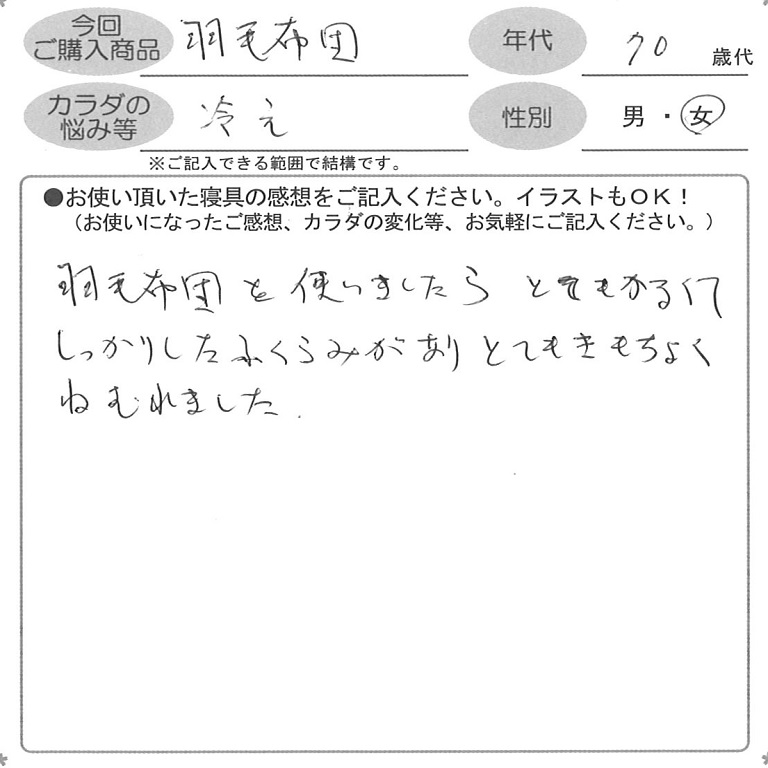 今回
ご購入商品 羽毛布団 年代 70 歳代
カラダの
悩み等 冷え 性別 男・女
※ご記入できる範囲で結構です。
●お使い頂いた寝具の感想をご記入ください。イラストもOK！
（お使いになったご感想、カラダの変化等、お気軽にご記入ください。）
羽毛布団を使いましたら とてもかるくて
しっかりしたふくらみがありとてもきもちよく
ねむれました.